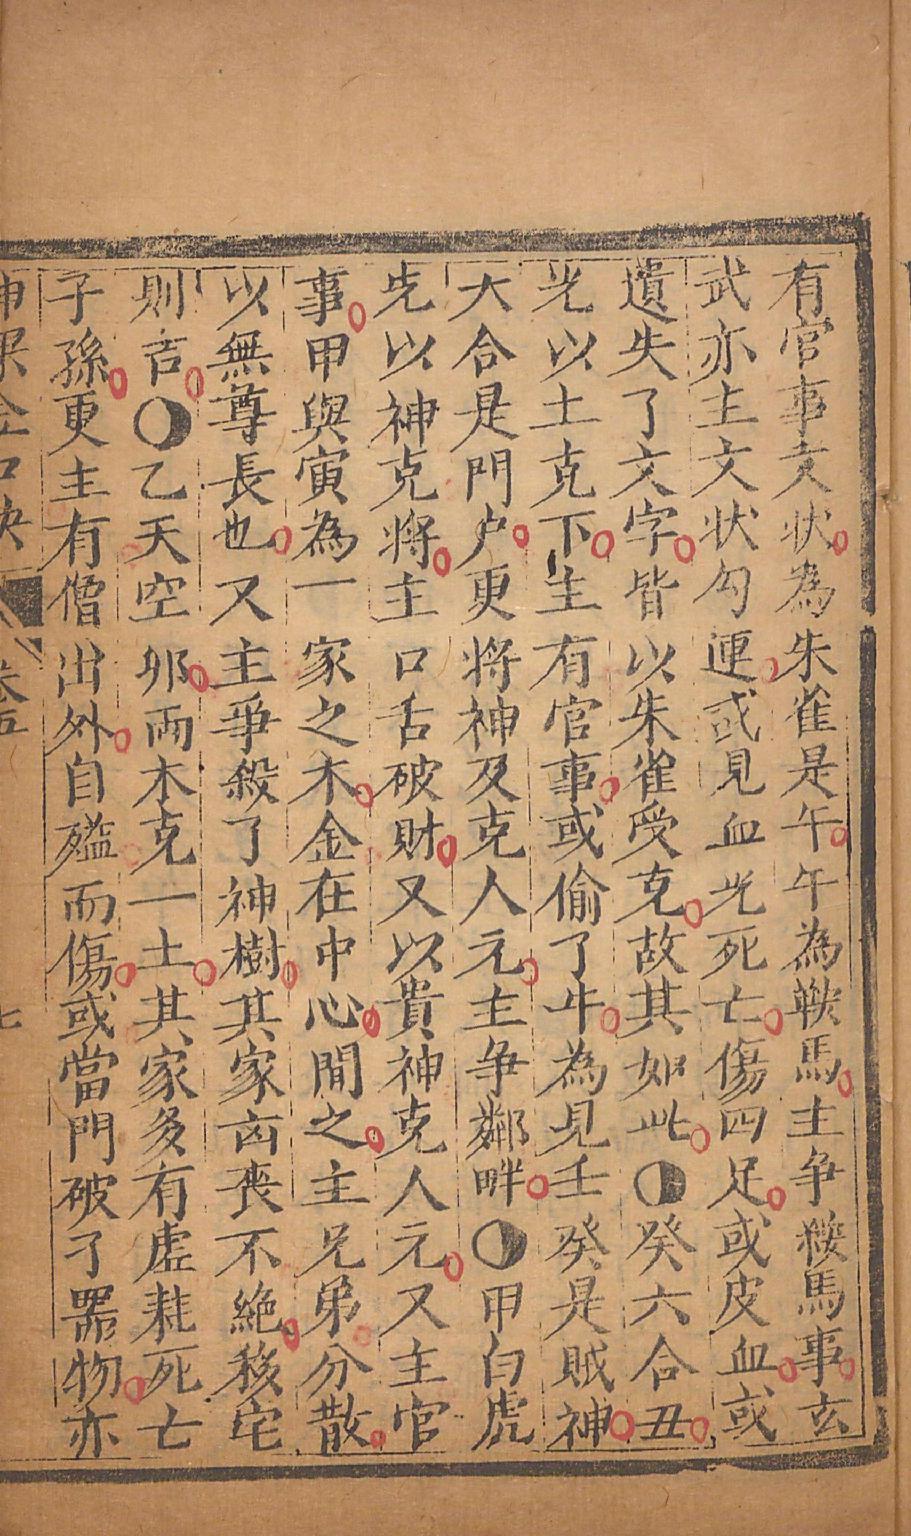 有官事文状為朱雀是午午為鞍馬主争鞍馬事玄
武亦主文状勾連或見血光死亡傷四足或皮血或
遺失了文字皆以朱雀受克故其如此◐癸六合丑
光以土克下主有官事或偷了牛為見壬癸是賊神
大合是門户更將神及克人元主争鄰畔◐甲白虎
先以神克將主口舌破財又以貴神克人元又主官
事甲與寅為一家之木金在中心間之主兄弟分散
以無尊長也又主爭殺了神樹其家凶喪不絶移宅
則吉◐乙天空卯両木克一土其家多有虚耗死亡
子孫更主有僧出外自縊而傷或當門破了器物亦
神課金口訣 卷五 七